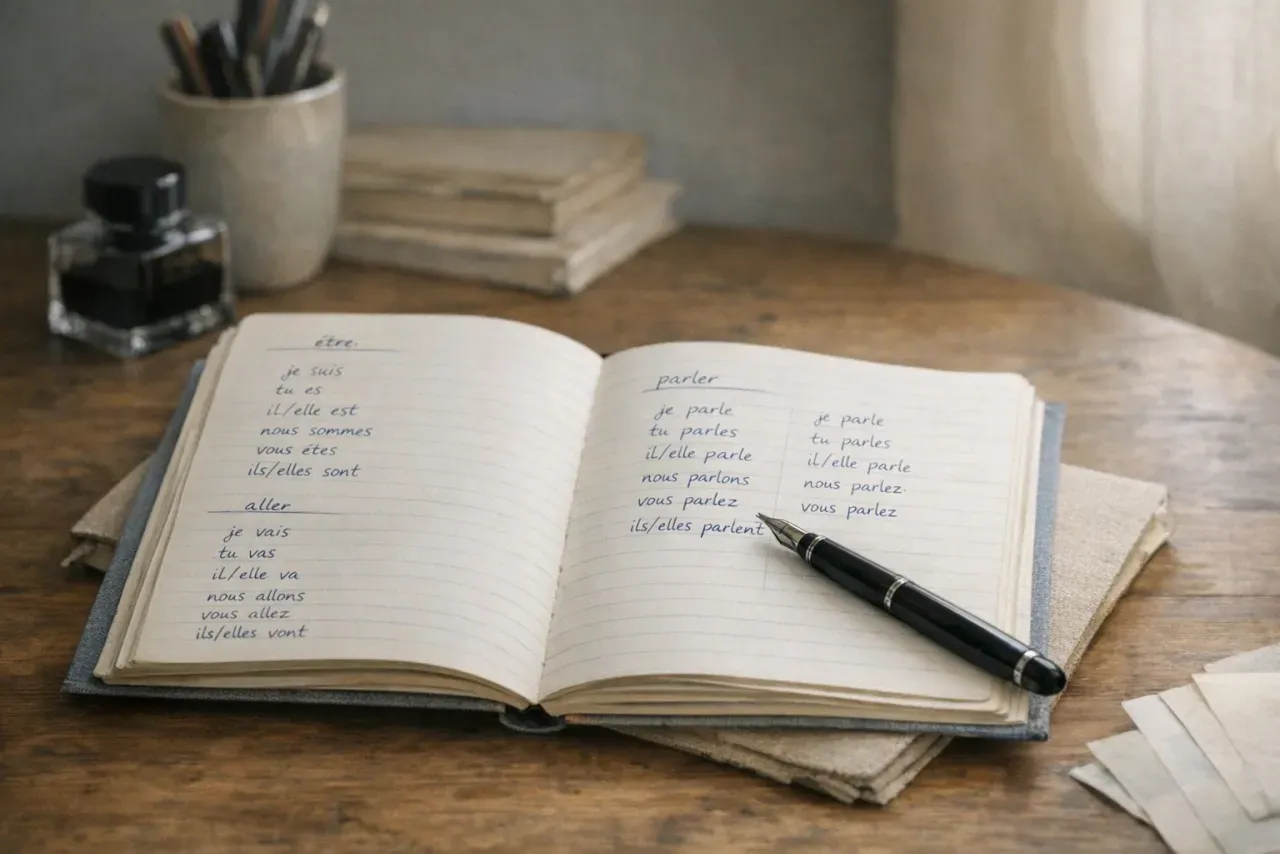 étre.
je suis
tu es
il/elle est
nous sommes
vous étes
ils/elles sont
aller
je vais
tu vas
il/elle va
nous allons
vous allez
ils/elles vont
parler
je parle
tu parles
il/elle parle
nous parlons
vous parlez
ils/elles parlent
je parle
tu parles
il/elle parle
nous parlez.
vous parlez